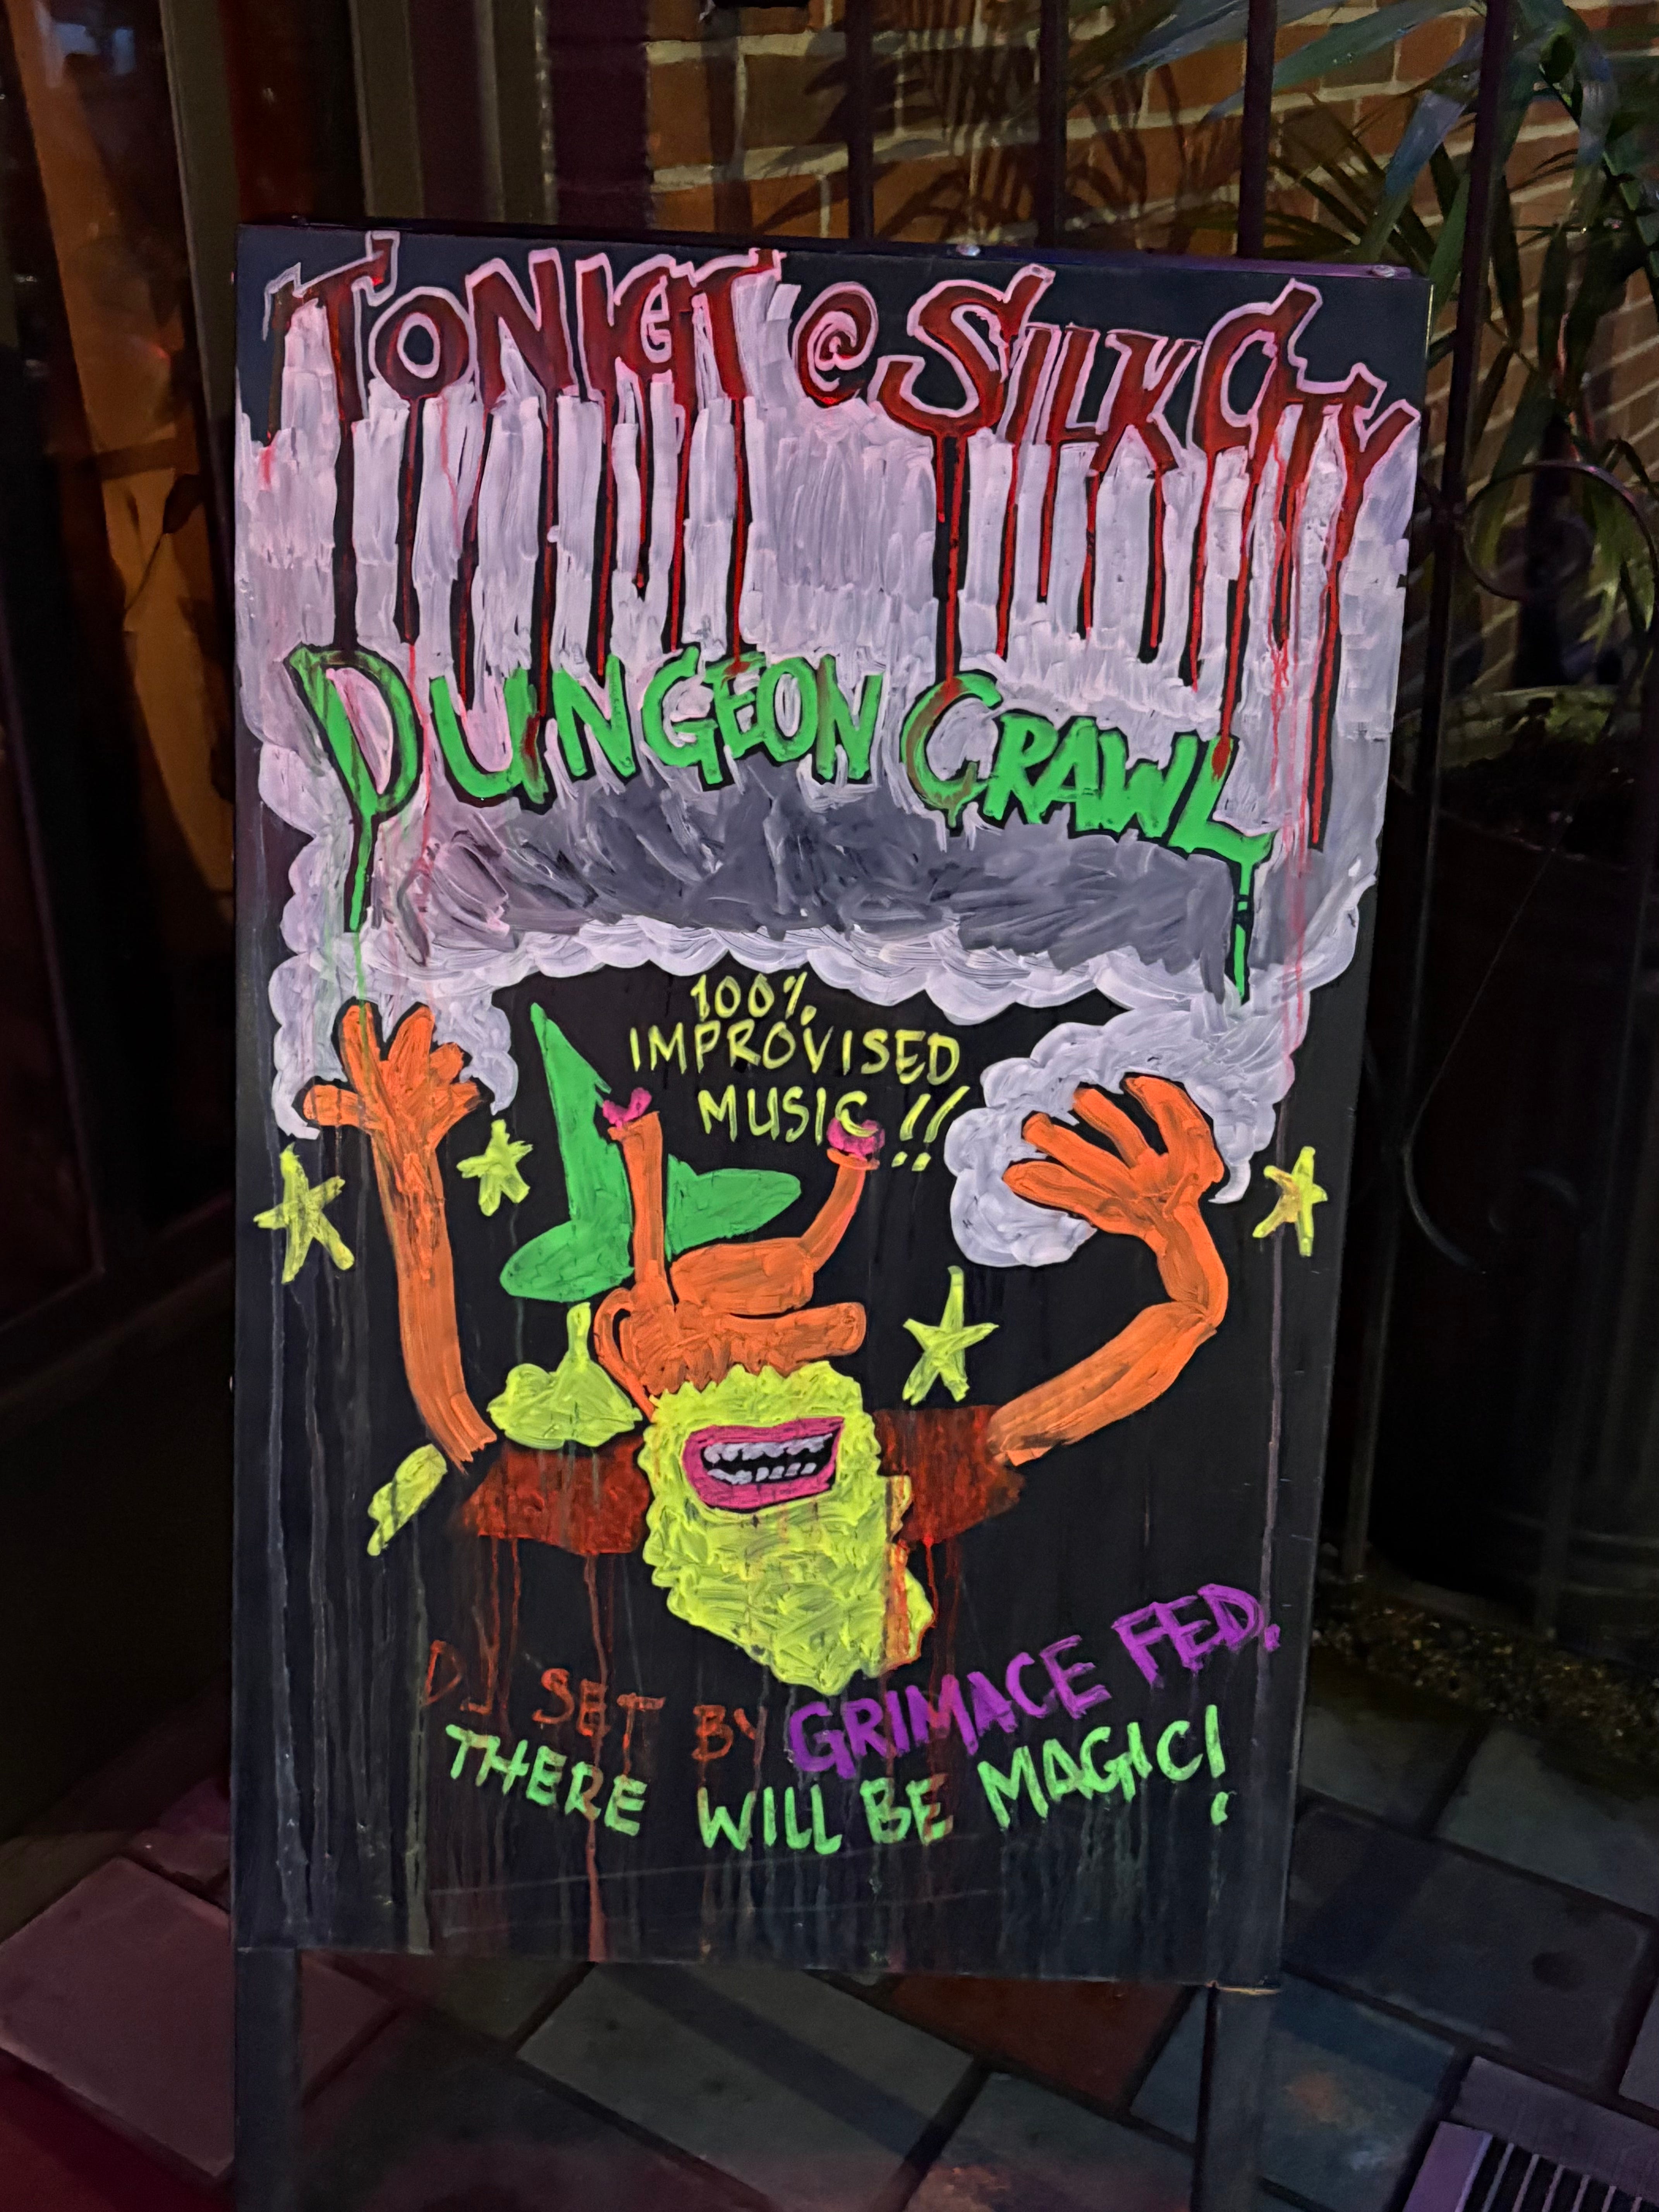 TONIGT @ SILK CITY
DUNGEON CRAWL
100%
IMPROVISED
MUSIC!!
DJ SET BY GRIMACE FED.
THERE WILL BE MAGIC!